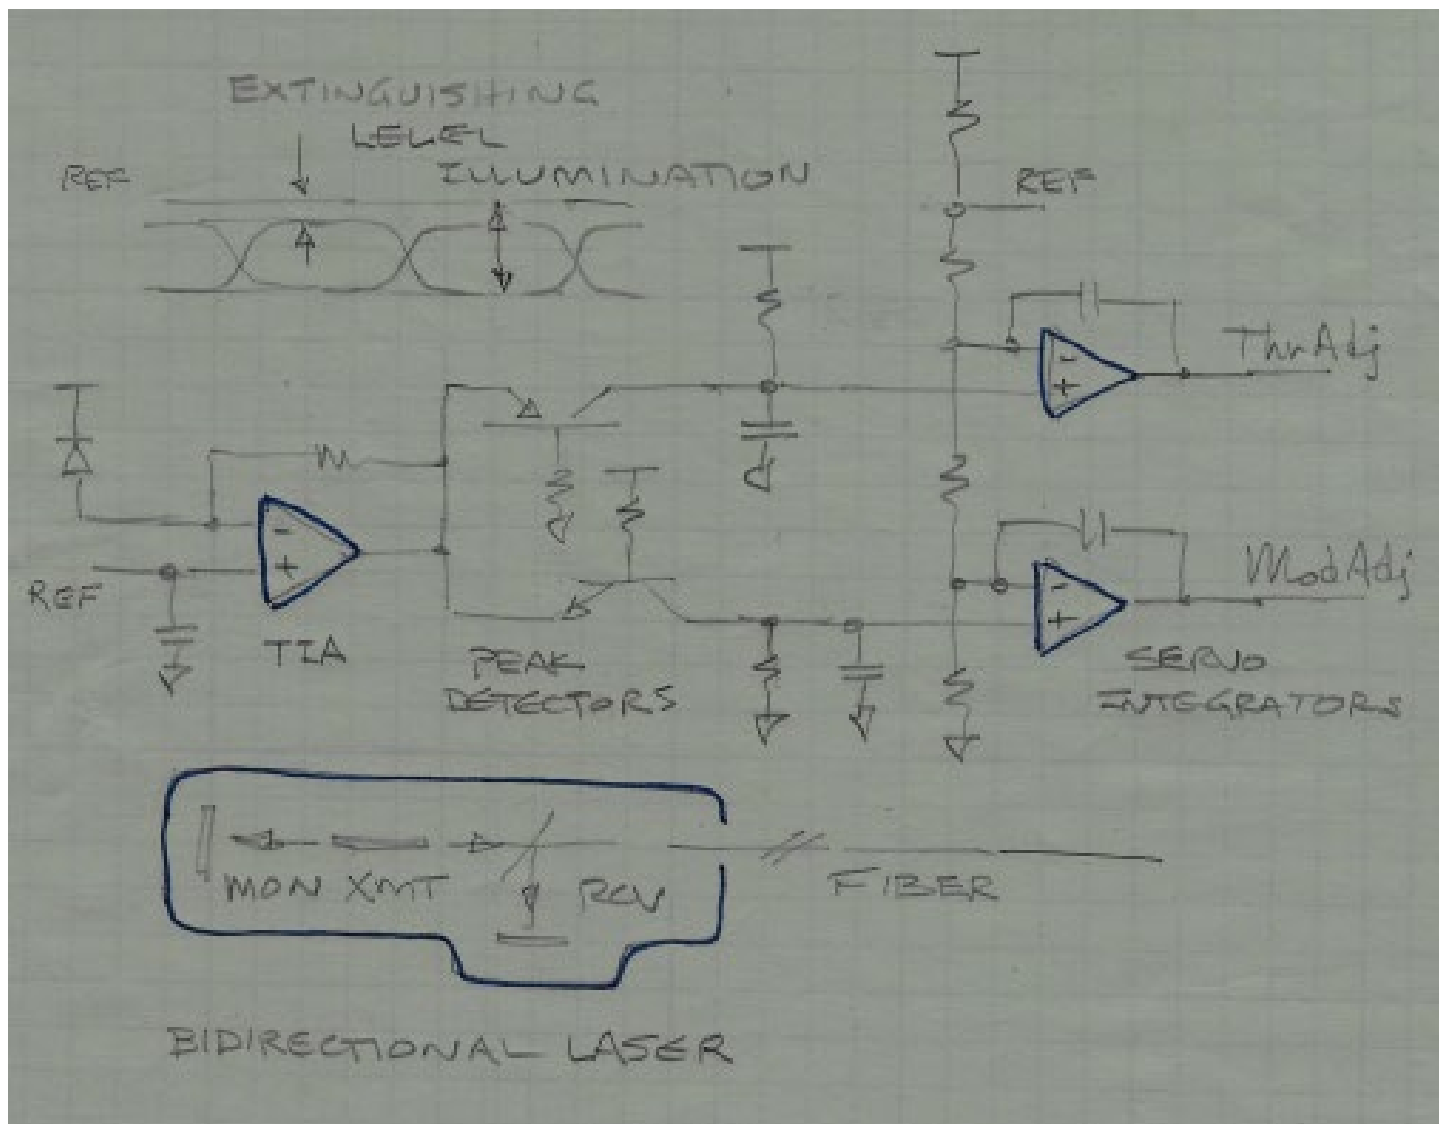 EXTINGUISHING
LEVEL
REF
ILLUMINATION
REF
ThrAdj
-
+
-
+
REF
TIA
PEAK
DETECTORS
ModAdj
-
+
SERVO
INTEGRATORS
MON XMT
RCV
FIBER
BIDIRECTIONAL LASER